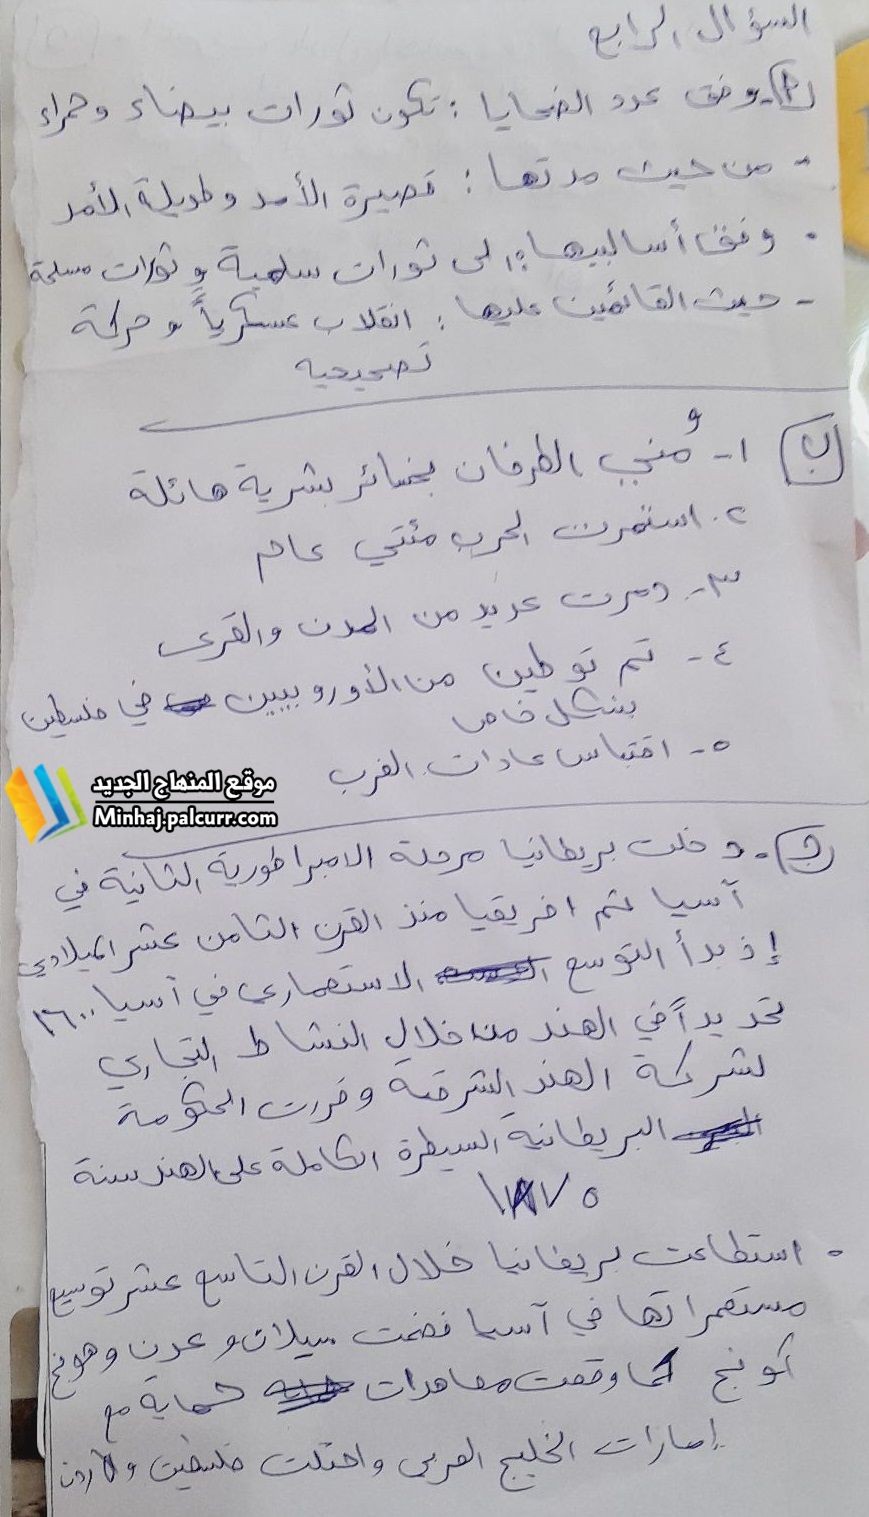 السؤال الرابع
أ- وفق عدد الضحايا : تكون ثورات بيضاء وحمراء
- من حيث مدتها : قصيرة الأمد وطويلة الأمد
- وفق أساليبها : الى ثورات سلمية و ثورات مسلحة
- حيث القائمين عليها : انقلاب عسكرياً و حركة
تصحيحيه
ب ١- مُني الطرفان بخسائر بشرية هائلة
٢. استمرت الحرب مئتي عام
٣- دمرت عديد من المدن والقرى
٤- تم توطين من الأوروبيين في فلسطين
بشكل خاص
٥- اقتباس عادات الغرب
موقع المنهاج الجديد
Minhaj.palcurr.com
دخلت بريطانيا مرحلة الامبراطورية الثانية في
آسيا ثم افريقيا منذ القرن الثامن عشر الميلادي
إذ بدأ التوسع الاستعماري في آسيا ١٦٠٠
تحديداً في الهند من خلال النشاط التجاري
لشركة الهند الشرقية وقررت الحكومة
البريطانية السيطرة الكاملة على الهند سنة
- استطاعت بريطانيا خلال القرن التاسع عشر توسيع
مستعمراتها في آسيا فضمت سيلان و عدن وهونج
كونج كما وقعت معاهدات حماية مع
إمارات الخليج العربي واحتلت فلسطين والأردن